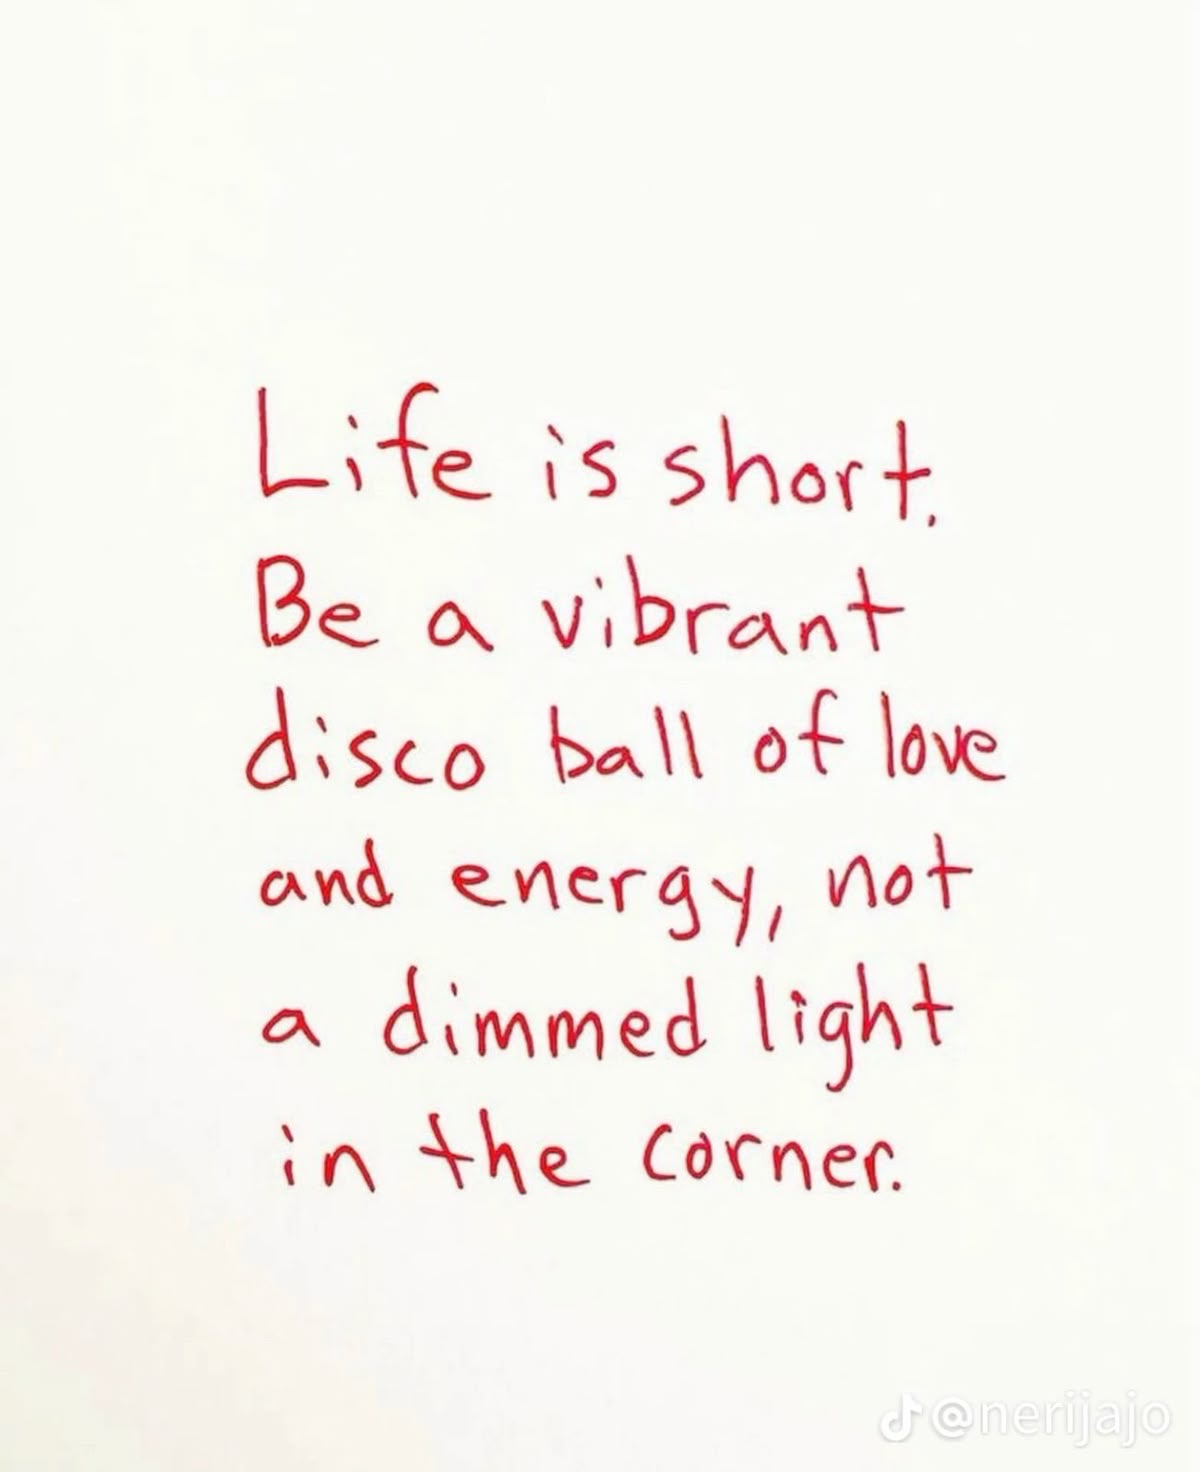 Life is short.
Be a vibrant
disco ball of love
and energy, not
a dimmed light
in the corner.
@nerijajo